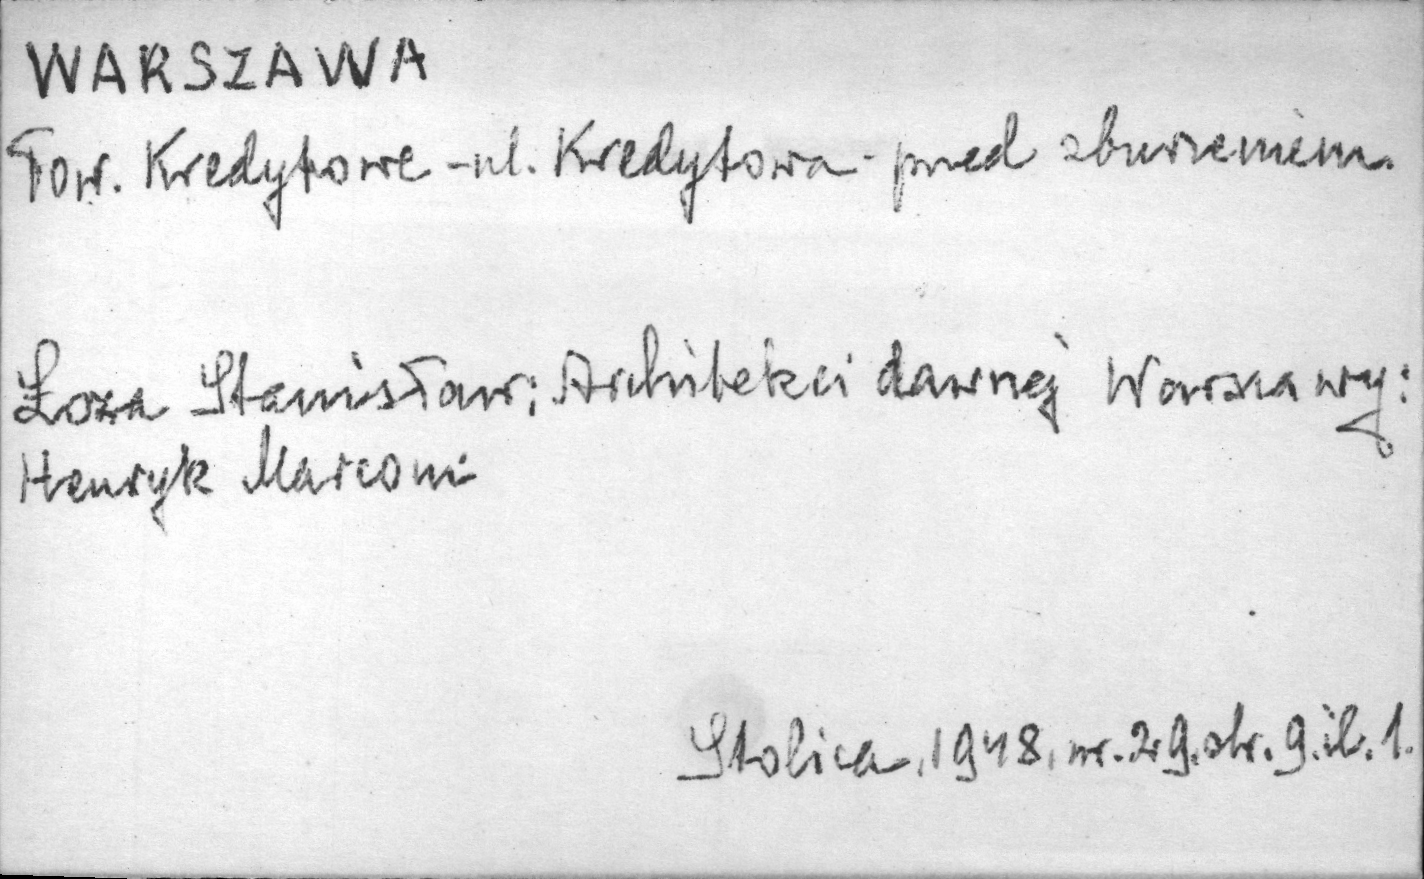 WARSZAWA
Tow. Kredytowe - ul. Kredytowa - przed zburzeniem.
Łoza Stanisław; Architekci dawnej Warszawy:
Henryk Marconi
Stolica, 1948, nr. 29. str. 9. il. 1.